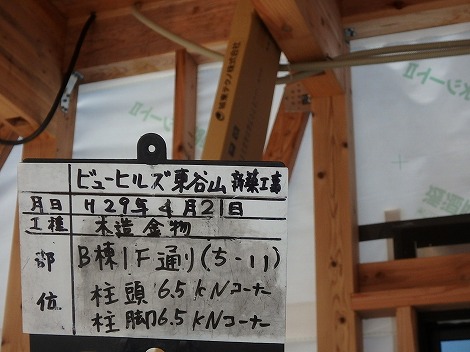 ビューヒルズ東谷山 新築工事
月日 H29年4月21日
工種 木造金物
部位 B棟1F通り(5-11)
柱頭 6.5kNコーナー
柱脚 6.5kNコーナー
シートⅡ